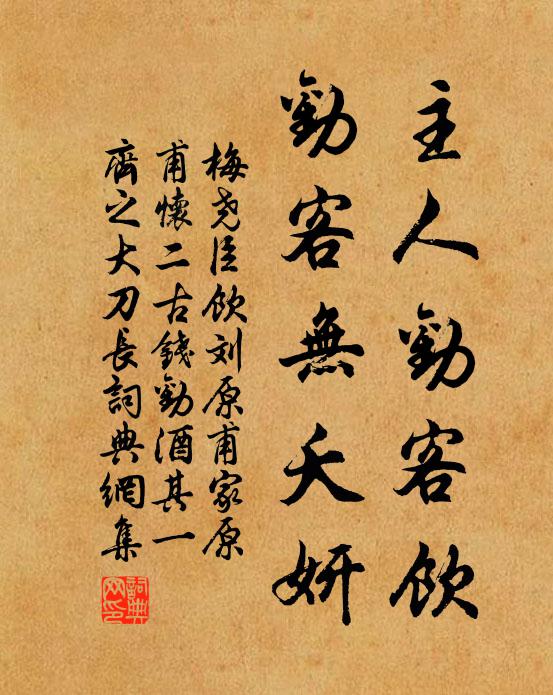 主人勸客飲
勸客無夭妍
梅尧臣飲刘原甫家原
甫懷二古錢勸酒其一
齊之大刀長詞典網集
詞典网印